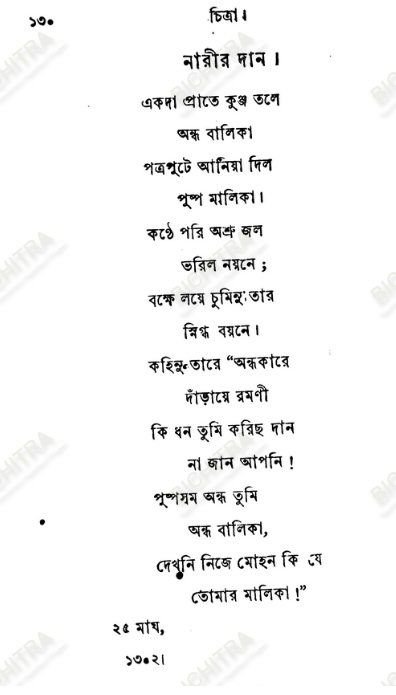 ১৩০
চিত্রা।
নারীর দান।
একদা প্রাতে কুঞ্জ তলে
অন্ধ বালিকা
পত্রপুটে আনিয়া দিল
পুষ্প মালিকা।
কণ্ঠে পরি অশ্রু জল
ভরিল নয়নে;
বক্ষে লয়ে চুমিনু তার
স্নিগ্ধ বয়নে।
কহিনু তারে “অন্ধকারে
দাঁড়ায়ে রমণী
কি ধন তুমি করিছ দান
না জান আপনি!
পুষ্পসম অন্ধ তুমি
অন্ধ বালিকা,
দেখনি নিজে মোহন কি যে
তোমার মালিকা!”
২৫ মাঘ,
১৩০২।